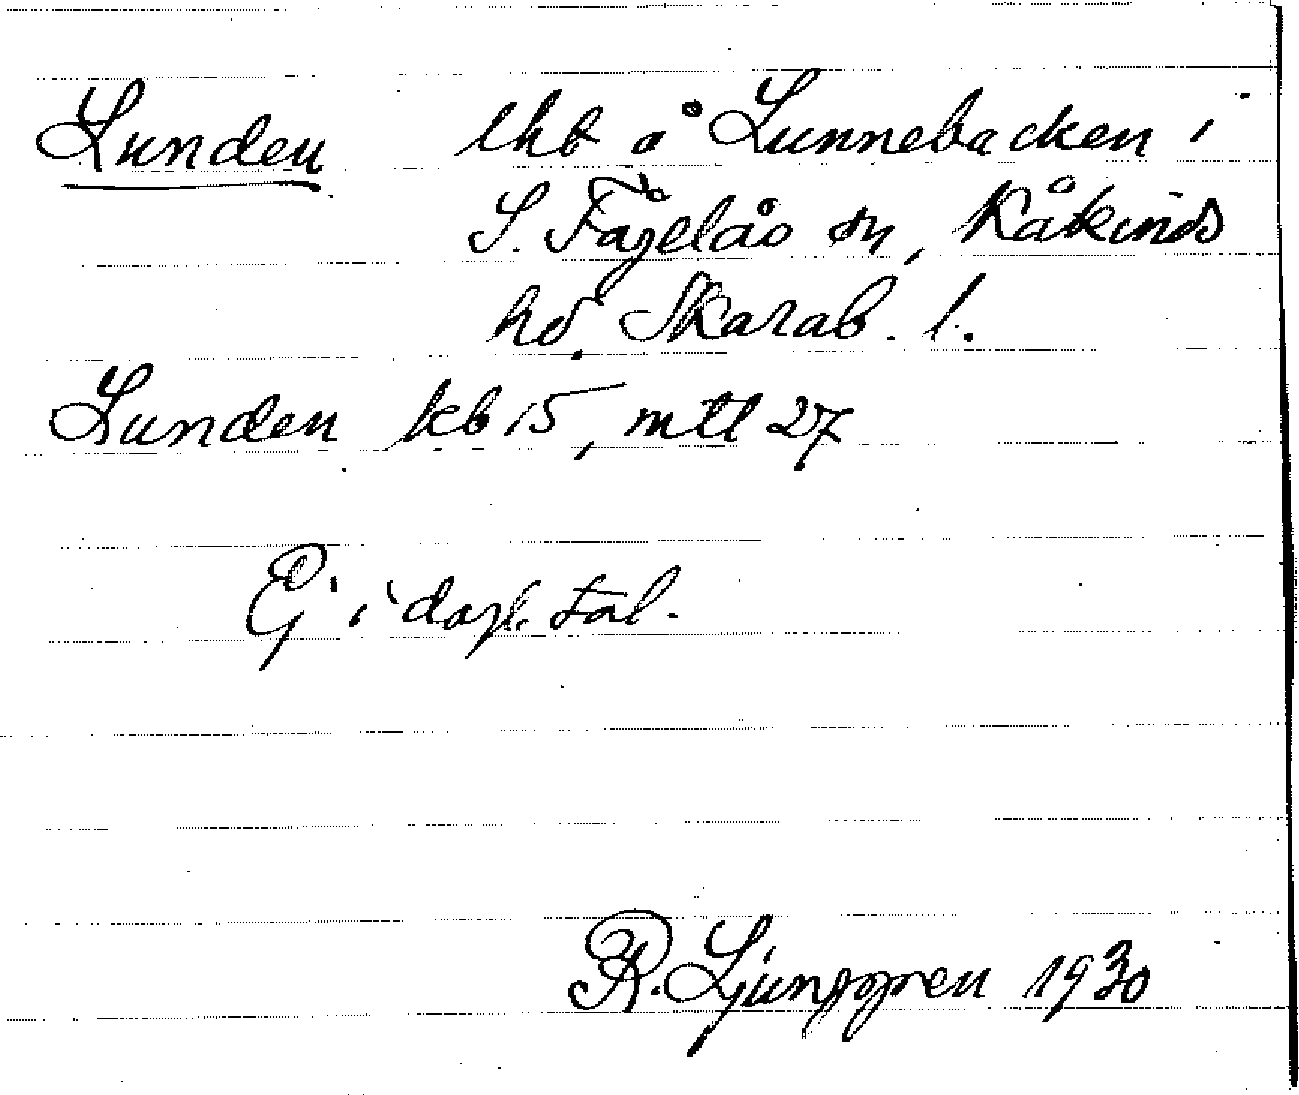 Lunden lht å Lunnebacken i
S. Fågelås sn, Kåkinds
hd. Skarab. l.
Lunden kb 15, mtl 27
Ej i dagl. tal.
R. Ljunggren 1930